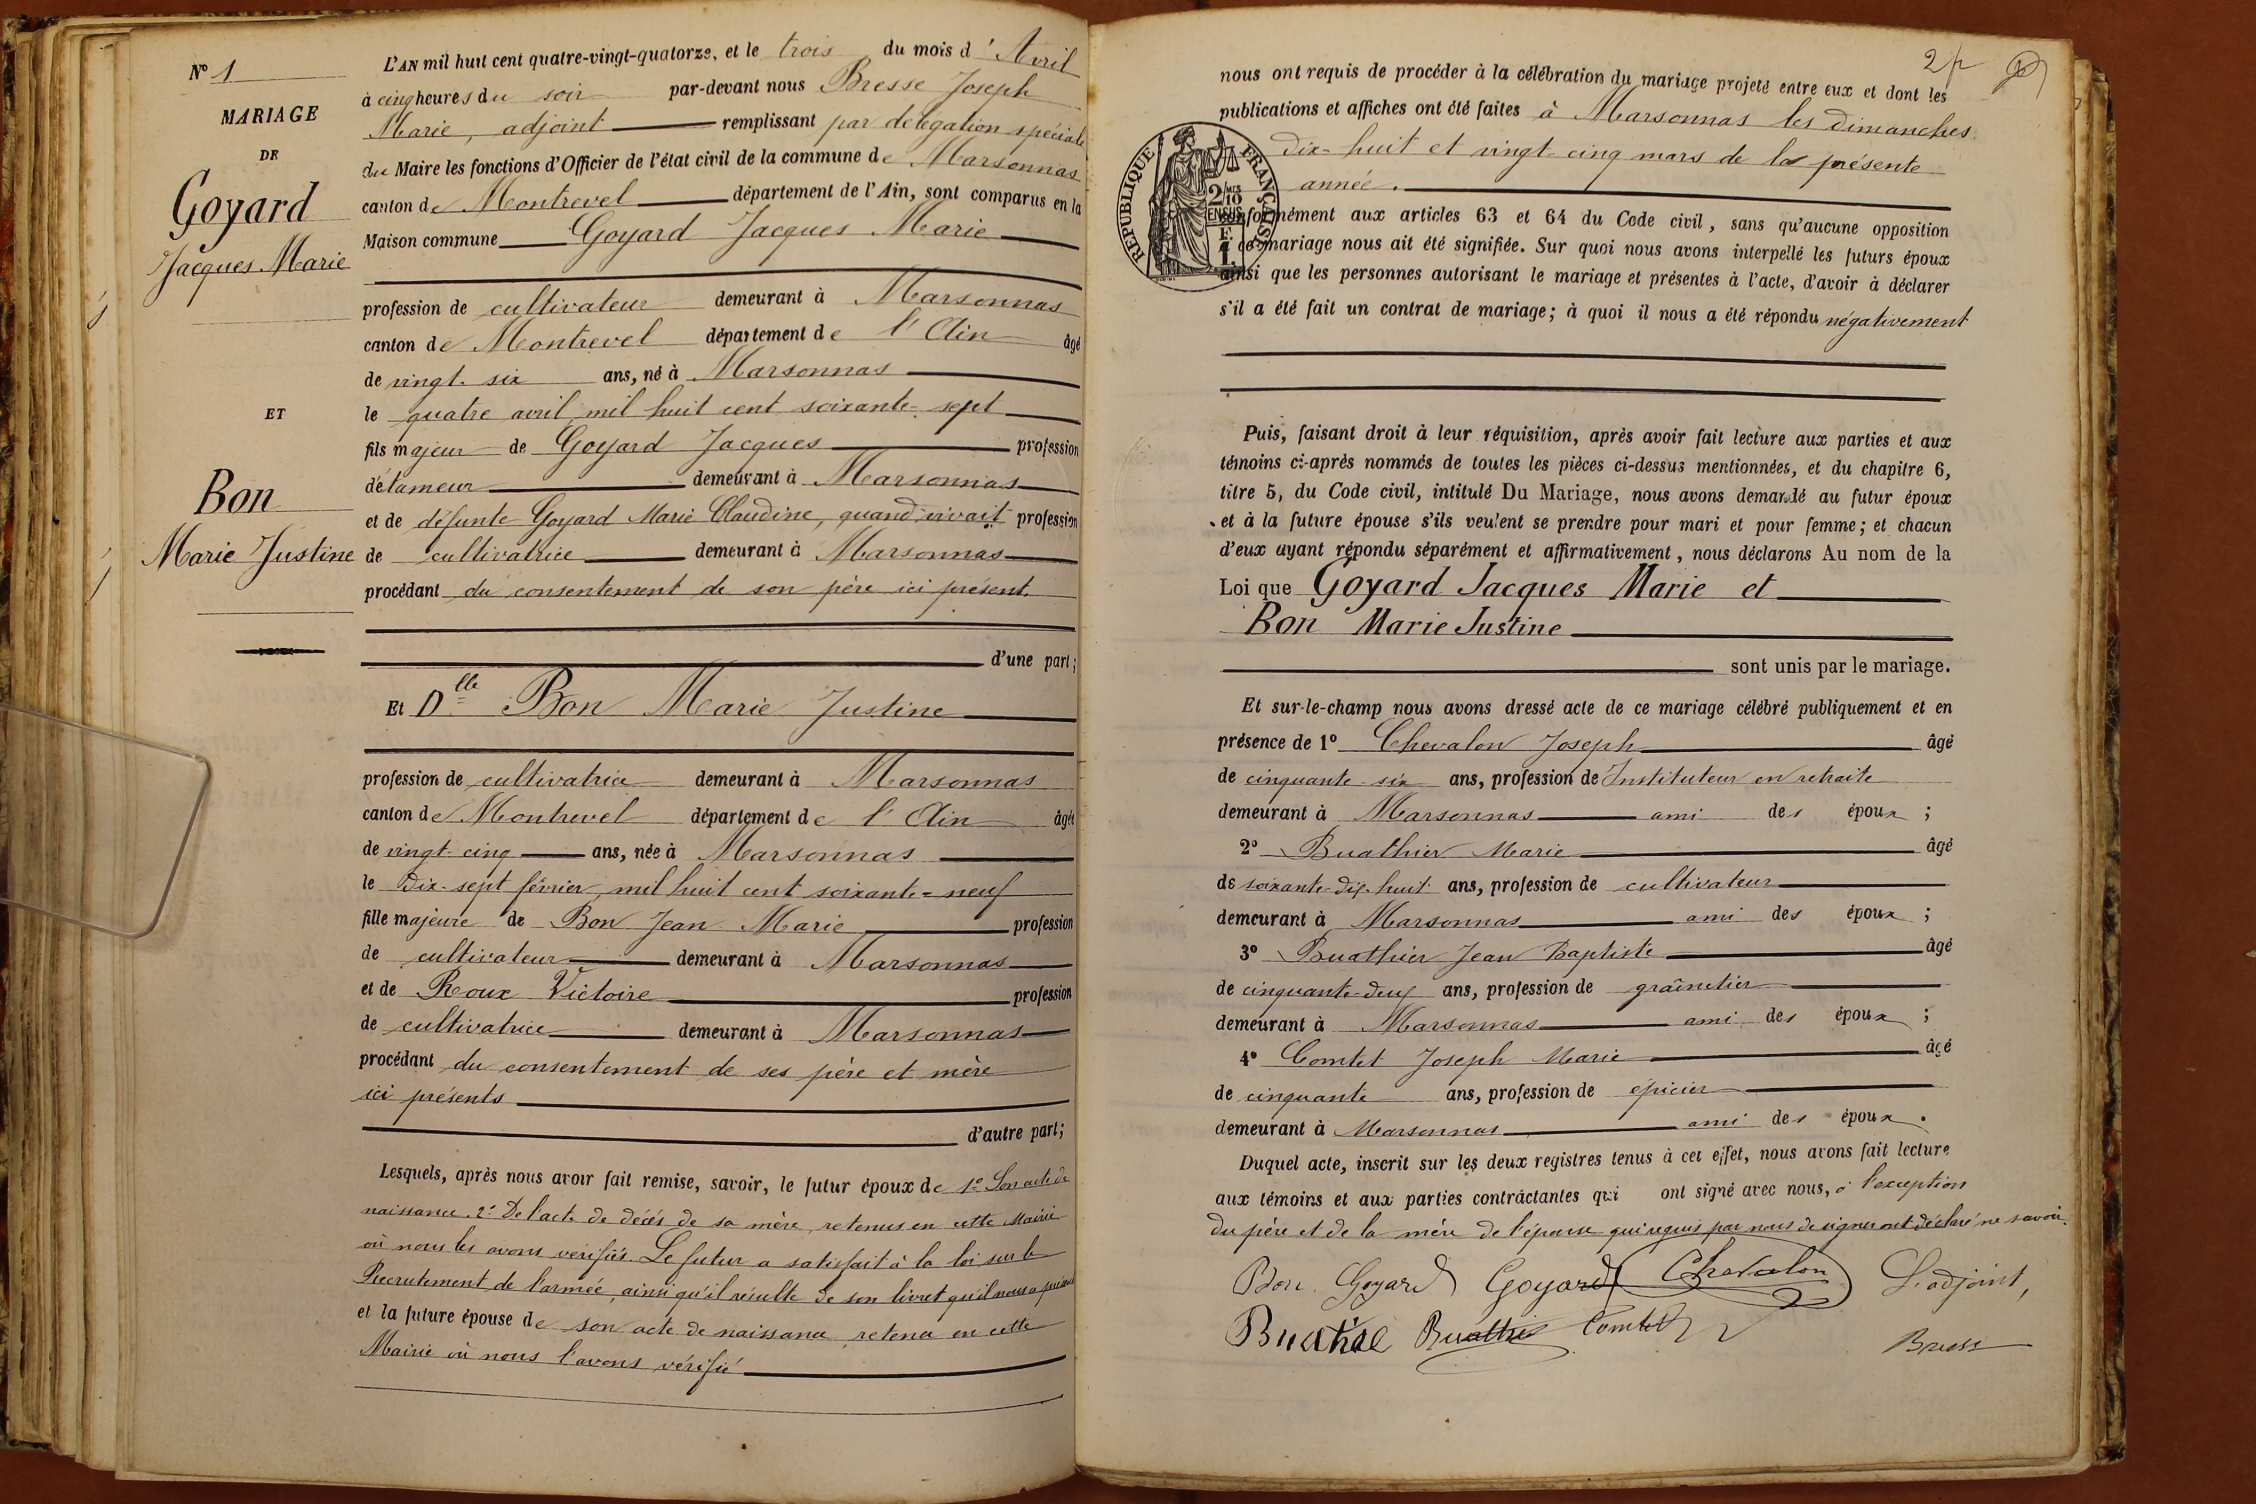 N° 1
MARIAGE
DE
Goyard
Jacques Marie
ET
Bon
Marie Justine
L'AN mil huit cent quatre-vingt-quatorze, et le trois du mois d'Avril
à cinq heures du soir par-devant nous Bresse Joseph
Marie, adjoint remplissant par délégation spéciale
du Maire les fonctions d'Officier de l'état civil de la commune de Marsonnas
canton de Montrevel département de l'Ain, sont comparus en la
Maison commune Goyard Jacques Marie
profession de cultivateur demeurant à Marsonnas
canton de Montrevel département de l'Ain âgé
de vingt-six ans, né à Marsonnas
le quatre avril mil huit cent soixante-sept
fils majeur de Goyard Jacques profession
d'étameur demeurant à Marsonnas
et de défunte Goyard Marie Claudine, quand vivait profession
de cultivatrice demeurant à Marsonnas
procédant du consentement de son père ici présent.
d'une part;
Et Dlle Bon Marie Justine
profession de cultivatrice demeurant à Marsonnas
canton de Montrevel département de l'Ain âgée
de vingt-cinq ans, née à Marsonnas
le Dix-sept février mil huit cent soixante-neuf
fille majeure de Bon Jean Marie profession
de cultivateur demeurant à Marsonnas
et de Roux Victoire profession
de cultivatrice demeurant à Marsonnas
procédant du consentement de ses père et mère
ici présents
d'autre part;
Lesquels, après nous avoir fait remise, savoir, le futur époux de 1° Son acte de
naissance. 2° De l'acte de décès de sa mère, retenus en cette Mairie
où nous les avons vérifiés. Le futur a satisfait à la loi sur le
Recrutement de l'armée, ainsi qu'il résulte de son livret qu'il nous a
et la future épouse de son acte de naissance retenu en cette
Mairie où nous l'avons vérifié
nous ont requis de procéder à la célébration du mariage projeté entre eux et dont les
publications et affiches ont été faites à Marsonnas les dimanches
dix-huit et vingt-cinq mars de la présente
année.
REPUBLIQUE FRANÇAISE
conformément aux articles 63 et 64 du Code civil, sans qu'aucune opposition
à ce mariage nous ait été signifiée. Sur quoi nous avons interpellé les futurs époux
ainsi que les personnes autorisant le mariage et présentes à l'acte, d'avoir à déclarer
s'il a été fait un contrat de mariage; à quoi il nous a été répondu négativement
Puis, faisant droit à leur réquisition, après avoir fait lecture aux parties et aux
témoins ci-après nommés de toutes les pièces ci-dessus mentionnées, et du chapitre 6,
titre 5, du Code civil, intitulé Du Mariage, nous avons demandé au futur époux
et à la future épouse s'ils veulent se prendre pour mari et pour femme; et chacun
d'eux ayant répondu séparément et affirmativement, nous déclarons Au nom de la
Loi que Goyard Jacques Marie et
Bon Marie Justine
sont unis par le mariage.
Et sur-le-champ nous avons dressé acte de ce mariage célébré publiquement et en
présence de 1° Chevalon Joseph âgé
de cinquante-six ans, profession de Instituteur en retraite
demeurant à Marsonnas ami des époux ;
2° Buathier Marie âgé
de soixante-dix-huit ans, profession de cultivateur
demeurant à Marsonnas ami des époux ;
3° Buathier Jean Baptiste âgé
de cinquante-deux ans, profession de grainetier
demeurant à Marsonnas ami des époux ;
4° Comtet Joseph Marie âgé
de cinquante ans, profession de épicier
demeurant à Marsonnas ami des époux.
Duquel acte, inscrit sur les deux registres tenus à cet effet, nous avons fait lecture
aux témoins et aux parties contractantes qui ont signé avec nous, à l'exception
du père et de la mère de l'épouse qui requis par nous de signer ont déclaré ne savoir.
Bon Goyard Goyard Chevalon L'adjoint,
Buathie Buathier Comtet Bresse